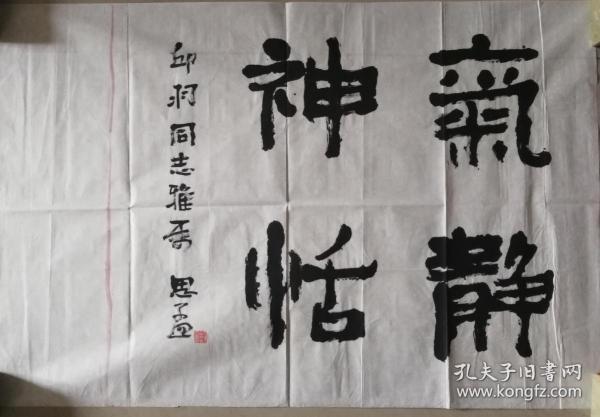 氣静
神恬
邱洞同志雅属 思孟
孔夫子旧书网
www.kongfz.com